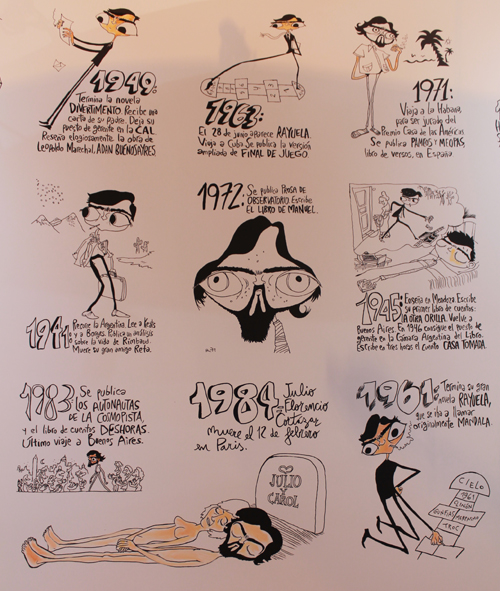 1949:
Termina la novela
DIVERTIMENTO. Recibe una
carta de su padre. Deja su
puesto de gerente en la CAL
Reseña elogiosamente la obra de
Leopoldo Marechal, ADÁN BUENOSAYRES.
1963:
El 28 de junio aparece RAYUELA.
Viaja a Cuba. Se publica la versión
ampliada de FINAL DE JUEGO.
1971:
Viaja a la Habana
para ser jurado del
Premio Casa de las Américas
Se publica PAMEOS Y MEOPAS,
libro de versos, en España
1941:
Recorre la Argentina. Lee a Keats
y a Borges. Publica un análisis
sobre la vida de Rimbaud.
Muere su gran amigo Reta.
1972: Se publica PROSA DE
OBSERVATORIO. Escribe
EL LIBRO DE MANUEL.
1945: Enseña en Mendoza Escribe
su primer libro de cuentos:
LA OTRA ORILLA. Vuelve a
Buenos Aires. En 1946 consigue el puesto de
gerente en la Cámara Argentina del Libro.
Escribe en tres horas el cuento CASA TOMADA.
1983: Se publica
LOS AUTONAUTAS
DE LA COSMOPISTA,
y el libro de cuentos DESHORAS.
Último viaje a Buenos Aires.
1984: Julio
Florencio
Cortázar
muere el 12 de febrero
en París.
JULIO
&
CAROL
1961: Termina su gran
novela RAYUELA,
que se iba a llamar
originalmente MANDALA.
CIELO
1961